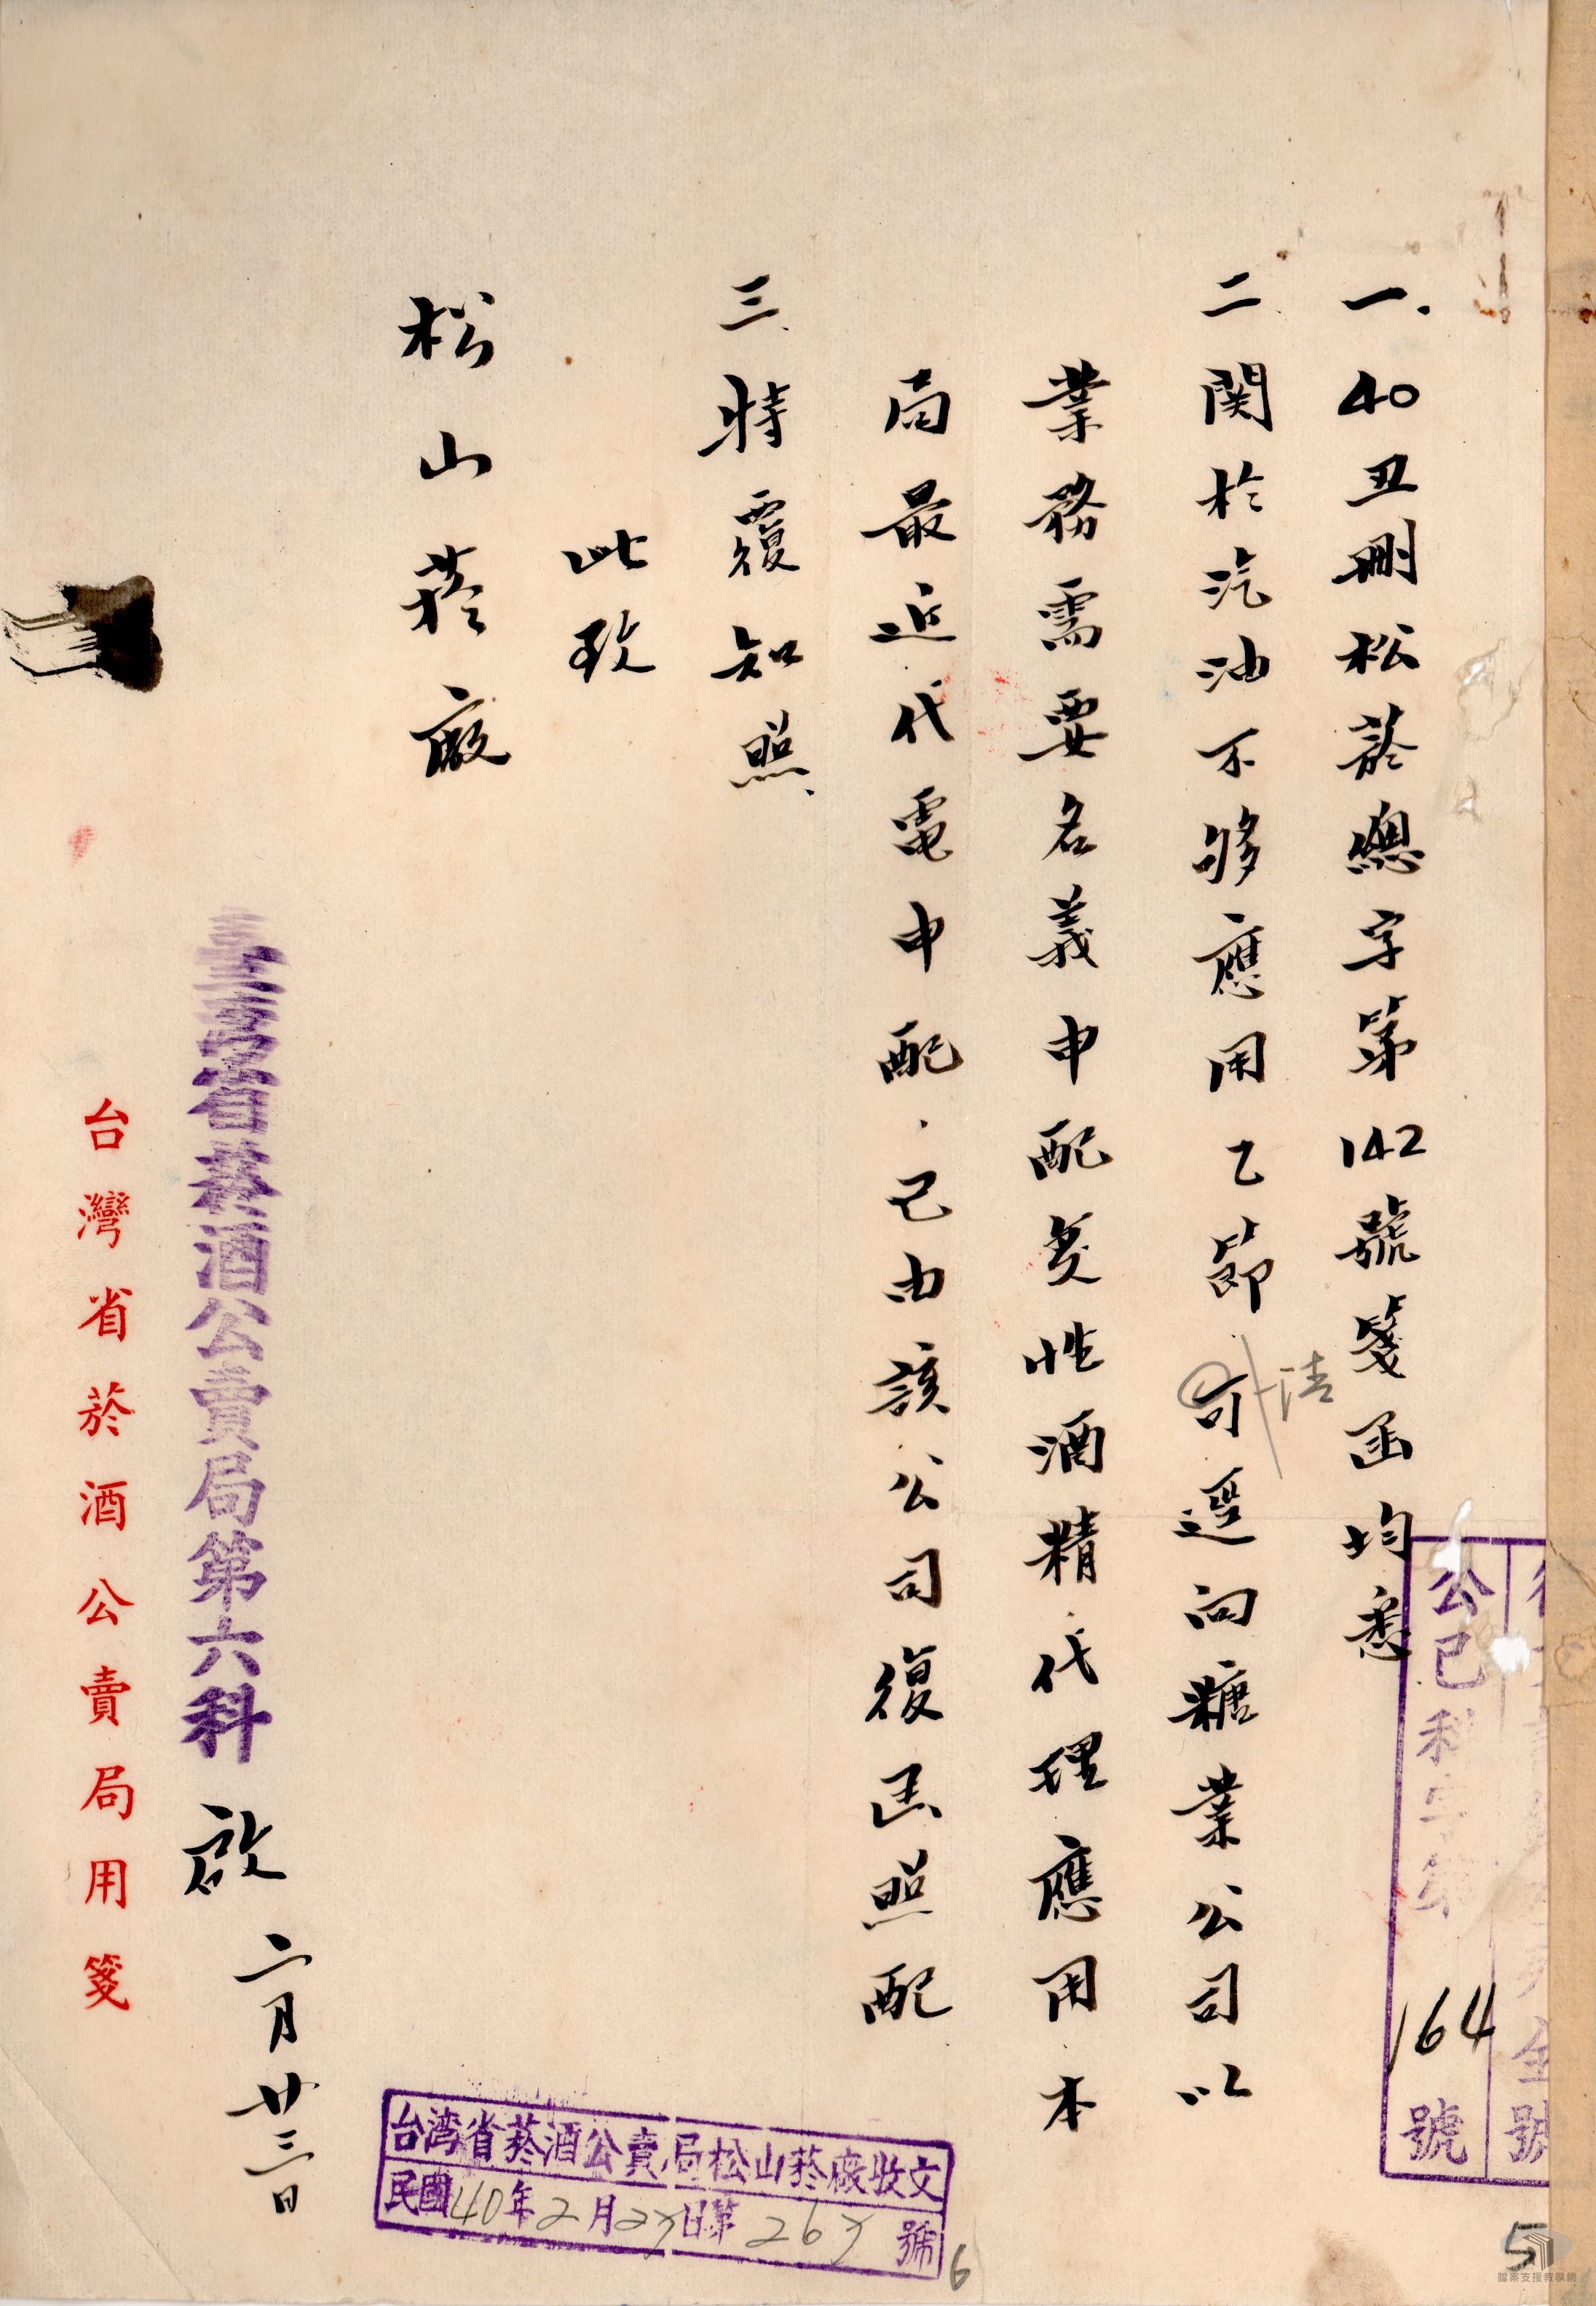 一.40丑刪松菸總字第142號箋函均悉
二.関於汽油不够應用乙節可逕向糖業公司以
業務需要名義申配変性酒精代理應用本
局最近代電申配.已由該公司復函照配
三.特覆知照.
此致
松山菸廠
省菸酒公賣局第六科 啟 二月廿三日
台灣省菸酒公賣局用箋
公已科字第 164 號
號
台湾省菸酒公賣局松山菸廠收文
民國40年2月 日第 號
6
5
檔案支援教學網